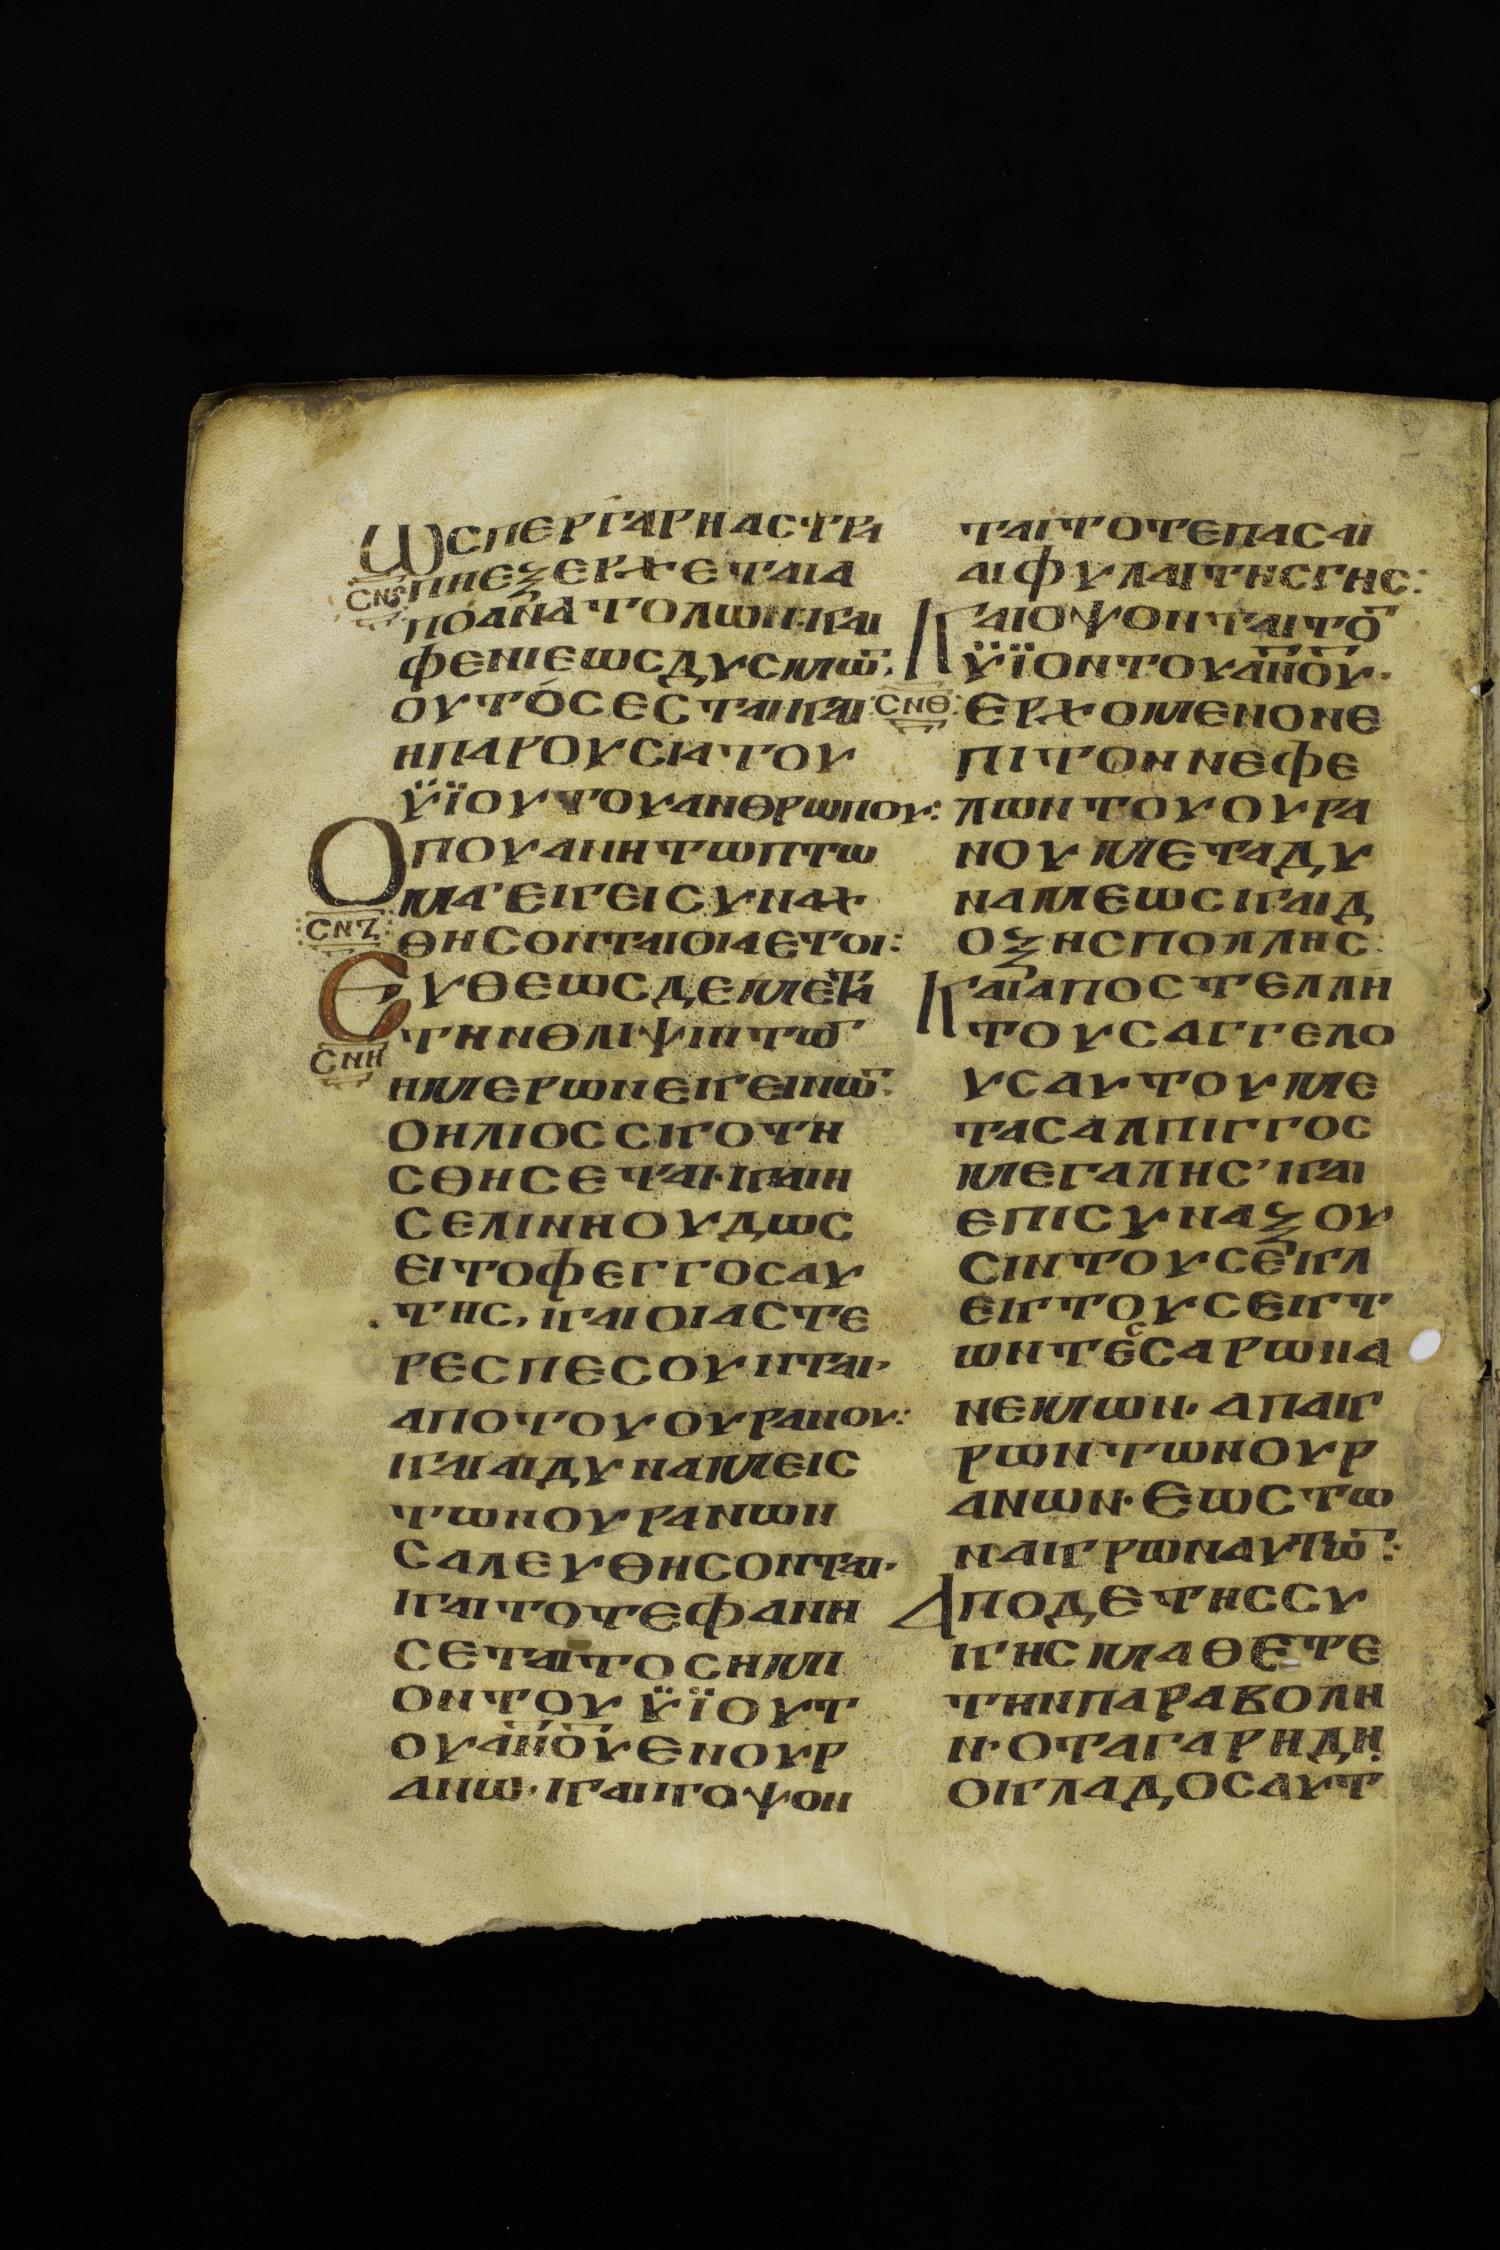 ΩСΠΕΡΓΑΡΗΑСΤΡΑ
СΝϚ
ΠΗΕΞΕΡΧΕΤΑΙΑ
ΠΟΑΝΑΤΟΛΩΝ·ΚΑΙ
ΦΕΝΙΕΩСΔΥСΜΩ̅·
ΟΥΤΟСΕСΤΑΙΚΑΙ
ΗΠΑΡΟΥСΙΑΤΟΥ
ΫΪΟΥΤΟΥΑΝΘΡΩΠΟΥ:
ΟΠΟΥΑΝΗΤΩΠΤΩ
ΜΑ'ΕΙΚΕΙСΥΝΑΧ
СΝΖ
ΘΗСΟΝΤΑΙΟΙΑΕΤΟΙ:
ΕΥΘΕΩСΔΕΜΕΤΑ
ΤΗΝΘΛΙΨΙΝΤΩ̅
СΝΗ
ΗΜΕΡΩΝΕΚΕΙΝΩ̅:
ΟΗΛΙΟССΚΟΤΗ
СΘΗСΕΤΑΙ·ΚΑΙΗ
СΕΛΙΝΗΟΥΔΩС
ΕΙΤΟΦΕΓΓΟСΑΥ
ΤΗС,ΚΑΙΟΙΑСΤΕ
ΡΕСΠΕСΟΥΝΤΑΙ·
ΑΠΟΤΟΥΟΥΡΑΝΟΥ:
ΚΑΙΑΙΔΥΝΑΜΕΙС
ΤΩΝΟΥΡΑΝΩΝ
СΑΛΕΥΘΗСΟΝΤΑΙ·
ΚΑΙΤΟΤΕΦΑΝΗ
СΕΤΑΙΤΟСΗΜΙ
ΟΝΤΟΥΫΪΟΥΤ
ΟΥΑ̅Ν̅Ο̅Υ̅ΕΝΟΥΡ
ΑΝΩ·ΚΑΙΚΟΨΟΝ
ΤΑΙΤΟΤΕΠΑСΑΙ
ΑΙΦΥΛΑΙΤΗСΓΗС:
ΚΑΙΟΨΟΝΤΑΙΤΟ̅
ΫΪΟΝΤΟΥΑ̅Ν̅Ο̅Υ̅·
СΝΘ
ΕΡΧΟΜΕΝΟΝΕ
ΠΙΤΟΝΝΕΦΕ
ΛΩΝΤΟΥΟΥΡΑ
ΝΟΥΜΕΤΑΔΥ
ΝΑΜΕΩСΚΑΙΔ
ΟΞΗСΠΟΛΛΗС:
ΚΑΙΑΠΟСΤΕΛΛΗ
ΤΟΥСΑΓΓΕΛΟ
ΥСΑΥΤΟΥΜΕ
ΤΑСΑΛΠΙΓΓΟС
ΜΕΓΑΛΗС'ΚΑΙ
ΕΠΙСΥΝΑΞΟΥ
СΙΝΤΟΥСΕΚΛ
ΕΚΤΟΥСΕΚΤ
ΩΝΤΕССΑΡΩΝΑ
ΝΕΜΩΝ·ΑΠΑΚ
ΡΩΝΤΩΝΟΥΡ
ΑΝΩΝ·ΕΩСΤΩ
ΝΑΚΡΩΝΑΥΤΩ̅:
ΑΠΟΔΕΤΗССΥ
ΚΗСΜΑΘΕΤΕ
ΤΗΝΠΑΡΑΒΟΛΗ
Ν·ΟΤΑΓΑΡΗΔΗ
ΟΚΛΑΔΟСΑΥΤ